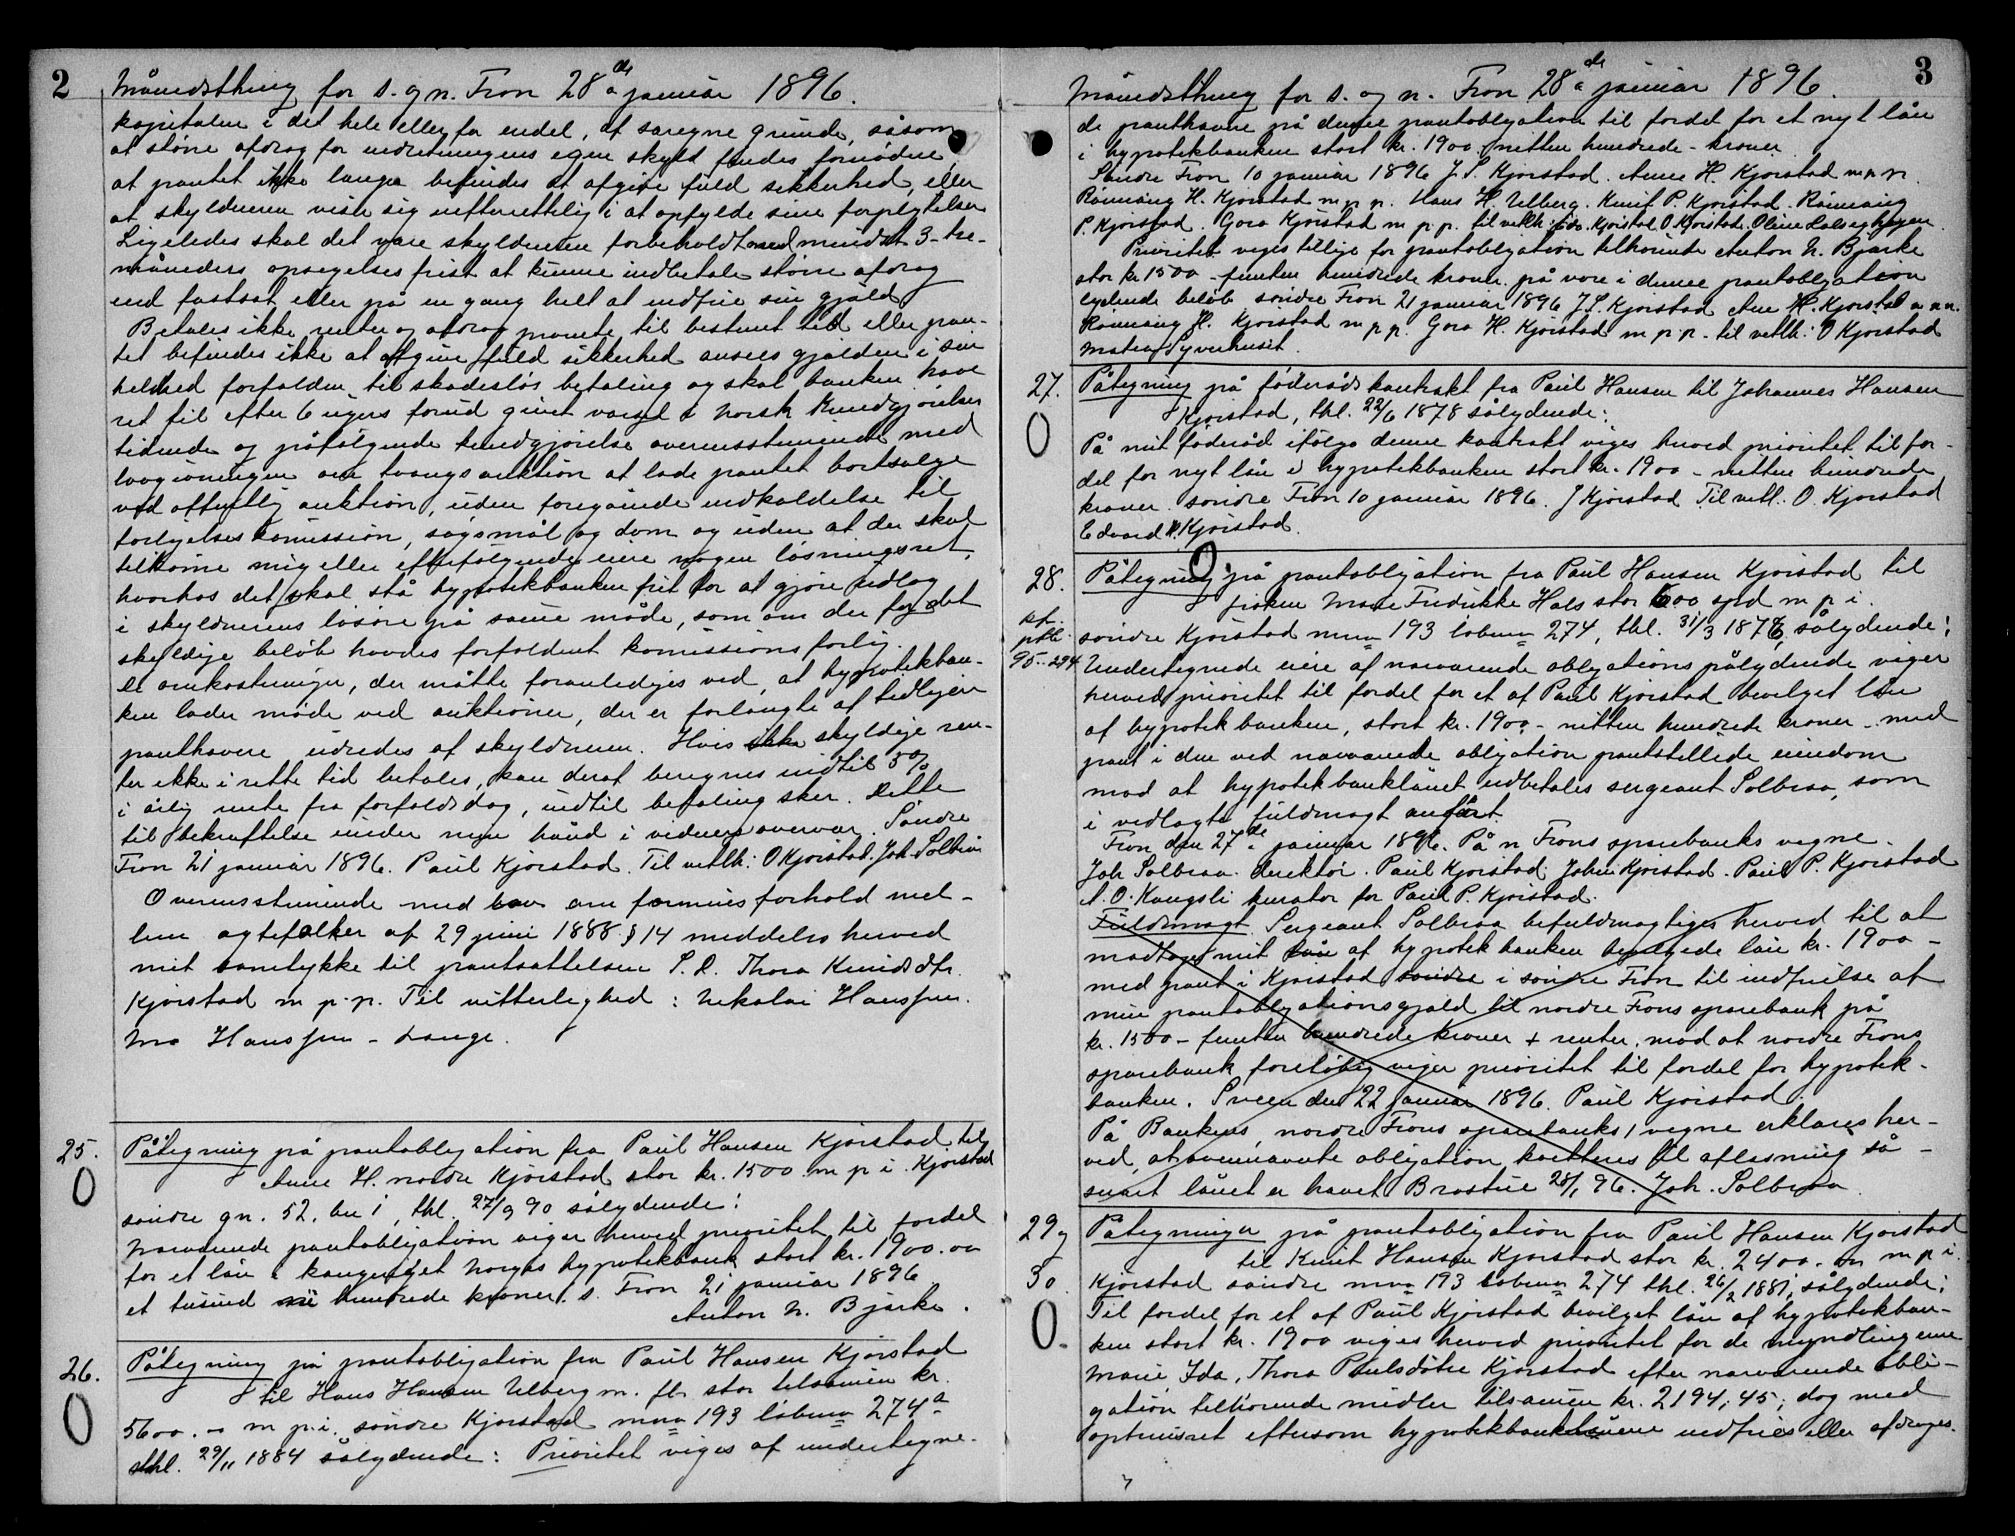 2
Månedsthing for s. og n. Fron 28de januar 1896.
kapitalen i det hele eller for endel, af særegne grunde, såsom
at større afdrag for indretningens egen skyld findes fornødne,
at pantet ikke længer befindes at afgive fuld sikkerhed, eller
at skyldneren viser sig uefterrettelig i at opfylde sine forpligtelser
Ligeledes skal det være skyldneren forbeholdt med mindst 3-tre-
måneders opsigelsesfrist at kunne indbetale større afdrag
end fastsat eller på en gang helt at indfrie sin gjæld
Betales ikke renter og afdrag promte til bestemt tid eller pan-
tet befindes ikke at afgive fuld sikkerhed ansees gjælden i sin
helhed forfalden til skadesløs betaling og skal banken have
ret til efter 6 ugers forud givet varsel i norsk kundgjørelses
tidende og påfølgende kundgjørelse overensstemmende med
lovgivningen om tvangsauktion at lade pantet bortsælge
ved offentlig auktion, uden foregående indkaldelse til
forligelseskomission, søgsmål og dom og uden at der skal
tilkomme mig eller efterfølgende eiere nogen løsningsret,
hvorhos det skal stå hypotekbanken frit for at gjøre udlæg
i skyldnerens løsøre på samme måde, som om der for det
skyldige beløb havdes forfaldent komissionsforlig.
De omkostninger, der måtte foranlediges ved, at hypotekban-
ken lader møde ved auktioner, der er forlangte af tidligere
panthavere udredes af skyldneren. Hvis ikke skyldige ren-
ter ikke i rette tid betales, kan deraf beregnes indtil 5%
i årlig rente fra forfaldsdag, indtil betaling sker. Dette
til bekræftelse under min hånd i vidners overvær. Søndre
Fron 21 januar 1896. Paul Kjorstad. Til vitlh: O Kjorstad. Joh. Solbraa
Overensstemmende med lov om formuesforhold mel-
lem ægtefolker af 29 juni 1888 § 14 meddeles herved
mit samtykke til pantsættelsen S. D. Thora Knudsdtr.
Kjorstad m. p. p. Til vitterlighed: Nikolai Hanssen.
Mo Hanssen - Lange.
25. Påtegning på pantobligation fra Paul Hansen Kjorstad til
Anne H. nordre Kjorstad stor kr. 1500 m p i Kjorstad
søndre gn. 52, bn 1, thl. 27/9 90 sålydende:
Nærværende pantobligation viger herved prioritet til fordel
for et lån i kongeriget Norges hypotekbank stort kr. 1900.00
et tusind ni hundrede kroner. s. Fron 21 januar 1896
Anton N. Bjørke.
26. Påtegning på pantobligation fra Paul Hansen Kjorstad
til Hans Hansen Ulberg m. fl. stor tilsammen kr.
5600.- m p. i. søndre Kjorstad mno 193 løbeno 274a
thl. 29/11 1884 sålydende: Prioritet viges af undertegne-
3
Månedsthing for s. og n. Fron 28de januar 1896.
de panthavere på denne pantobligation til fordel for et nyt lån
i hypotekbanken stort kr. 1900 nitten hundrede - kroner
Søndre Fron 10 januar 1896 J. P. Kjorstad. Anne H. Kjorstad m p p.
Rønnaug H. Kjorstad m p p. Hans H. Ulberg. Knut P. Kjorstad. Rønnaug
P. Kjorstad. Goro Kjorstad m p p. til vitlh: O Kjorstad. Oline
Prioritet viges tillige for pantobligation tilhørende Anton N. Bjørke
stor kr 1500 - femten hundrede kroner på vore i denne pantobligation
lydende beløb søndre Fron 21 januar 1896 J P. Kjorstad Ane H. Kjorstad m p p.
Rønnaug H. Kjorstad m p p. Goro H. Kjorstad m p p. til vitlh: O Kjorstad
Mathea Syverhuset.
27. Påtegning på føderådskontrakt fra Paul Hansen til Johannes Hansen
Kjorstad, thl. 22/6 1878 sålydende:
På mit føderåd ifølge denne kontrakt viges herved prioritet til for-
del for nyt lån i hypotekbanken stort kr. 1900 - nitten hundrede
kroner. søndre Fron 10 januar 1896. J Kjorstad Til vitl. O. Kjorstad
Edvard Kjorstad.
28. Påtegning på pantobligation fra Paul Hansen Kjorstad til
frøken Marie Fredrikke Hals stor 600 spd m p i.
pkb. søndre Kjorstad mno 193 løbeno 274, thl. 31/3 1876, sålydende:
95-294 Undertegnede eier af nærværende obligations pålydende viger
herved prioritet til fordel for et af Paul Kjorstad bevilget lån
af hypotekbanken, stort kr. 1900 - nitten hundrede kroner - med
pant i den ved nærværende obligation pantstillede eiendom
mod at hypotekbanklånet udbetales sergeant Solbraa, som
i vedlagte fuldmagt anført
Fron den 27de januar 1896. På n Frons sparebanks vegne.
Joh Solbraa direktør. Paul Kjorstad. Johan Kjorstad. Paul P. Kjorstad
A. O. Kongsli kurator for Paul P. Kjorstad.
Fuldmagt Sergeant Solbraa befuldmægtiges herved til at
modtage mit lån af hypotekbanken bevilgede lån kr. 1900 -
med pant i Kjorstad søndre i søndre Fron til indfrielse af
min pantobligationsgjæld til nordre Frons sparebank på
kr. 1500 - femten hundrede kroner + renter, mod at nordre Frons
sparebank foreløbig viger prioritet til fordel for hypotek-
banken. Sveen den 22 januar 1896. Paul Kjorstad.
På Bankens, nordre Frons sparebanks, vegne erklæres her-
ved, at ovennævnte obligation kvitteres til aflæsning så-
snart lånet er hævet Brostue 28/1 96. Joh. Solbraa.
29 og Påtegninger på pantobligation fra Paul Hansen Kjorstad
til Knut Hansen Kjorstad stor kr. 2400.- m p i.
30. Kjorstad søndre mno 193 løbeno 274 thl. 26/2 1881, sålydende:
Til fordel for et af Paul Kjorstad bevilget lån af hypotekban-
ken stort kr. 1900 viges herved prioritet for de myndlingerne
Marie, Ida, Thora Paulsdøtre Kjorstad efter nærværende obli-
gation tilhørende midler tilsammen kr. 2194,45; dog med
optrinsret eftersom hypotekbanklånene indfries eller afdrages.